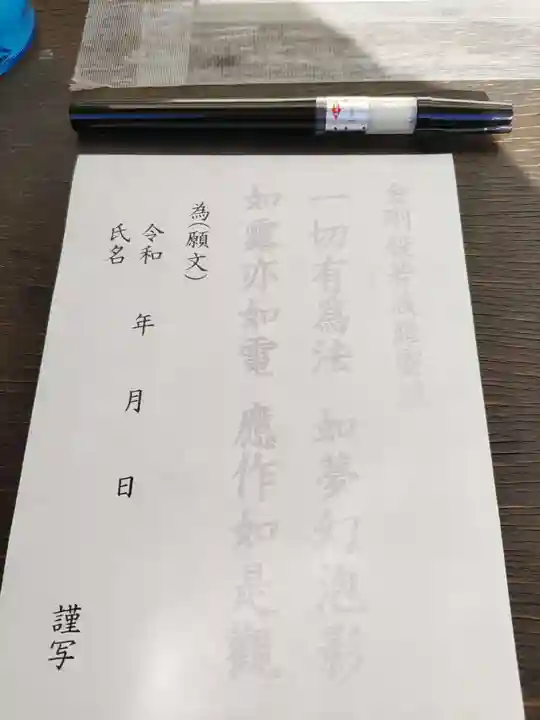 金剛般若波羅蜜經
一切有為法 如夢幻泡影
如露亦如電 應作如是觀
為(願文)
令和 年 月 日
氏名
謹写